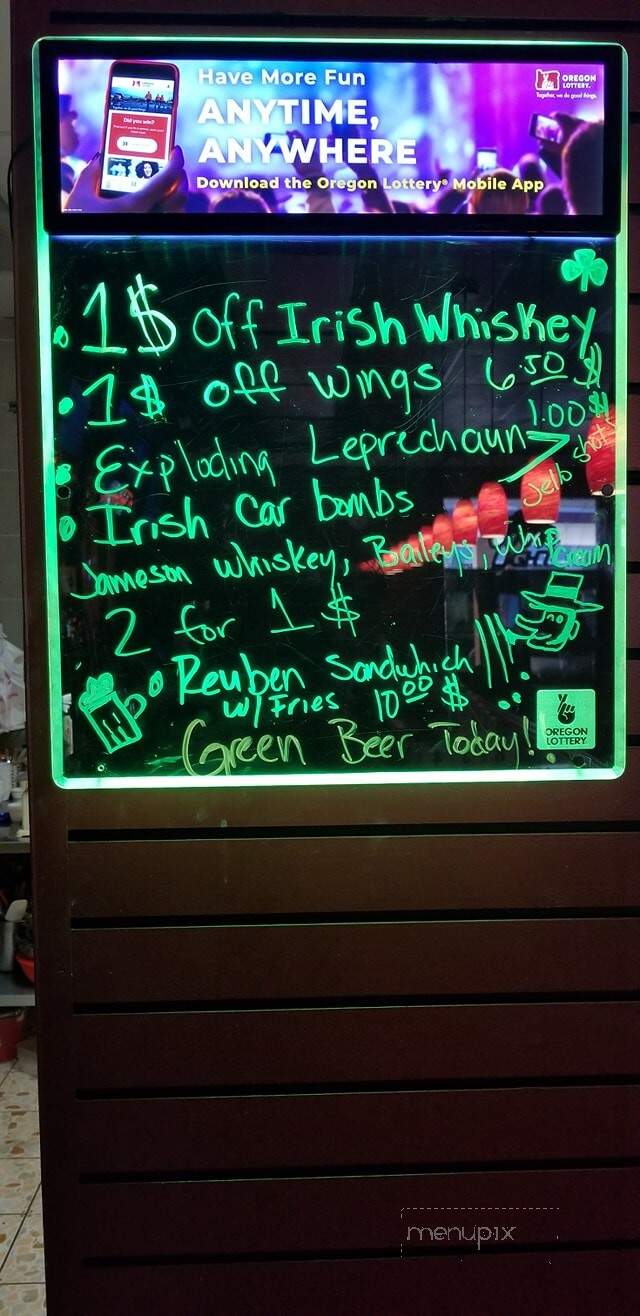 Have More Fun
ANYTIME,
ANYWHERE
Download the Oregon Lottery® Mobile App
OREGON
LOTTERY.
Together, we do good things.
Did you win?
1$ off Irish Whiskey
1$ off wings 6.50 $
Exploding Leprechaun > 1.00 $
Jello shots
Irish Car bombs
Jameson whiskey, Baileys, Whip Cream
2 for 1 $
Reuben Sandwhich
w/ Fries 10.00 $
Green Beer Today!
OREGON
LOTTERY
menupix